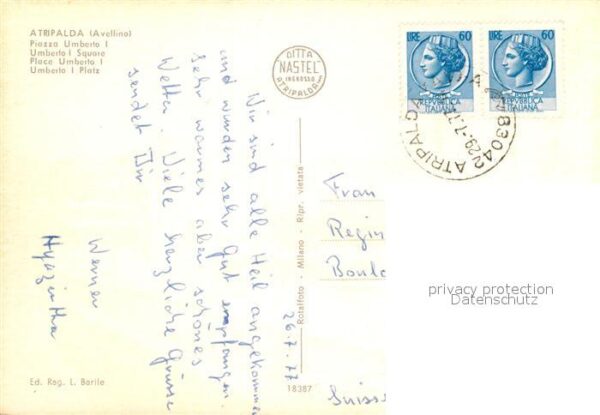 ATRIPALDA (Avellino)
Piazza Umberto I
Umberto I Square
Place Umberto I
Umberto I Platz
DITTA
NASTEL
INGROSSO
ATRIPALDA
LIRE 60
REPVBBLICA
ITALIANA
LIRE 60
REPVBBLICA
ITALIANA
83042 ATRIPALDA
29.7.
26.7.77
Wir sind alle Heil angekommen
und wurden sehr gut empfangen.
Sehr warmes aber schönes
Wetter. Viele herzliche Grüsse
sendet Dir
Werner
Hyazintha
Rotalfoto - Milano - Ripr. vietata
18387
Ed. Rag. L. Barile
Frau
Regin
Boul
Suiss
privacy protection
Datenschutz